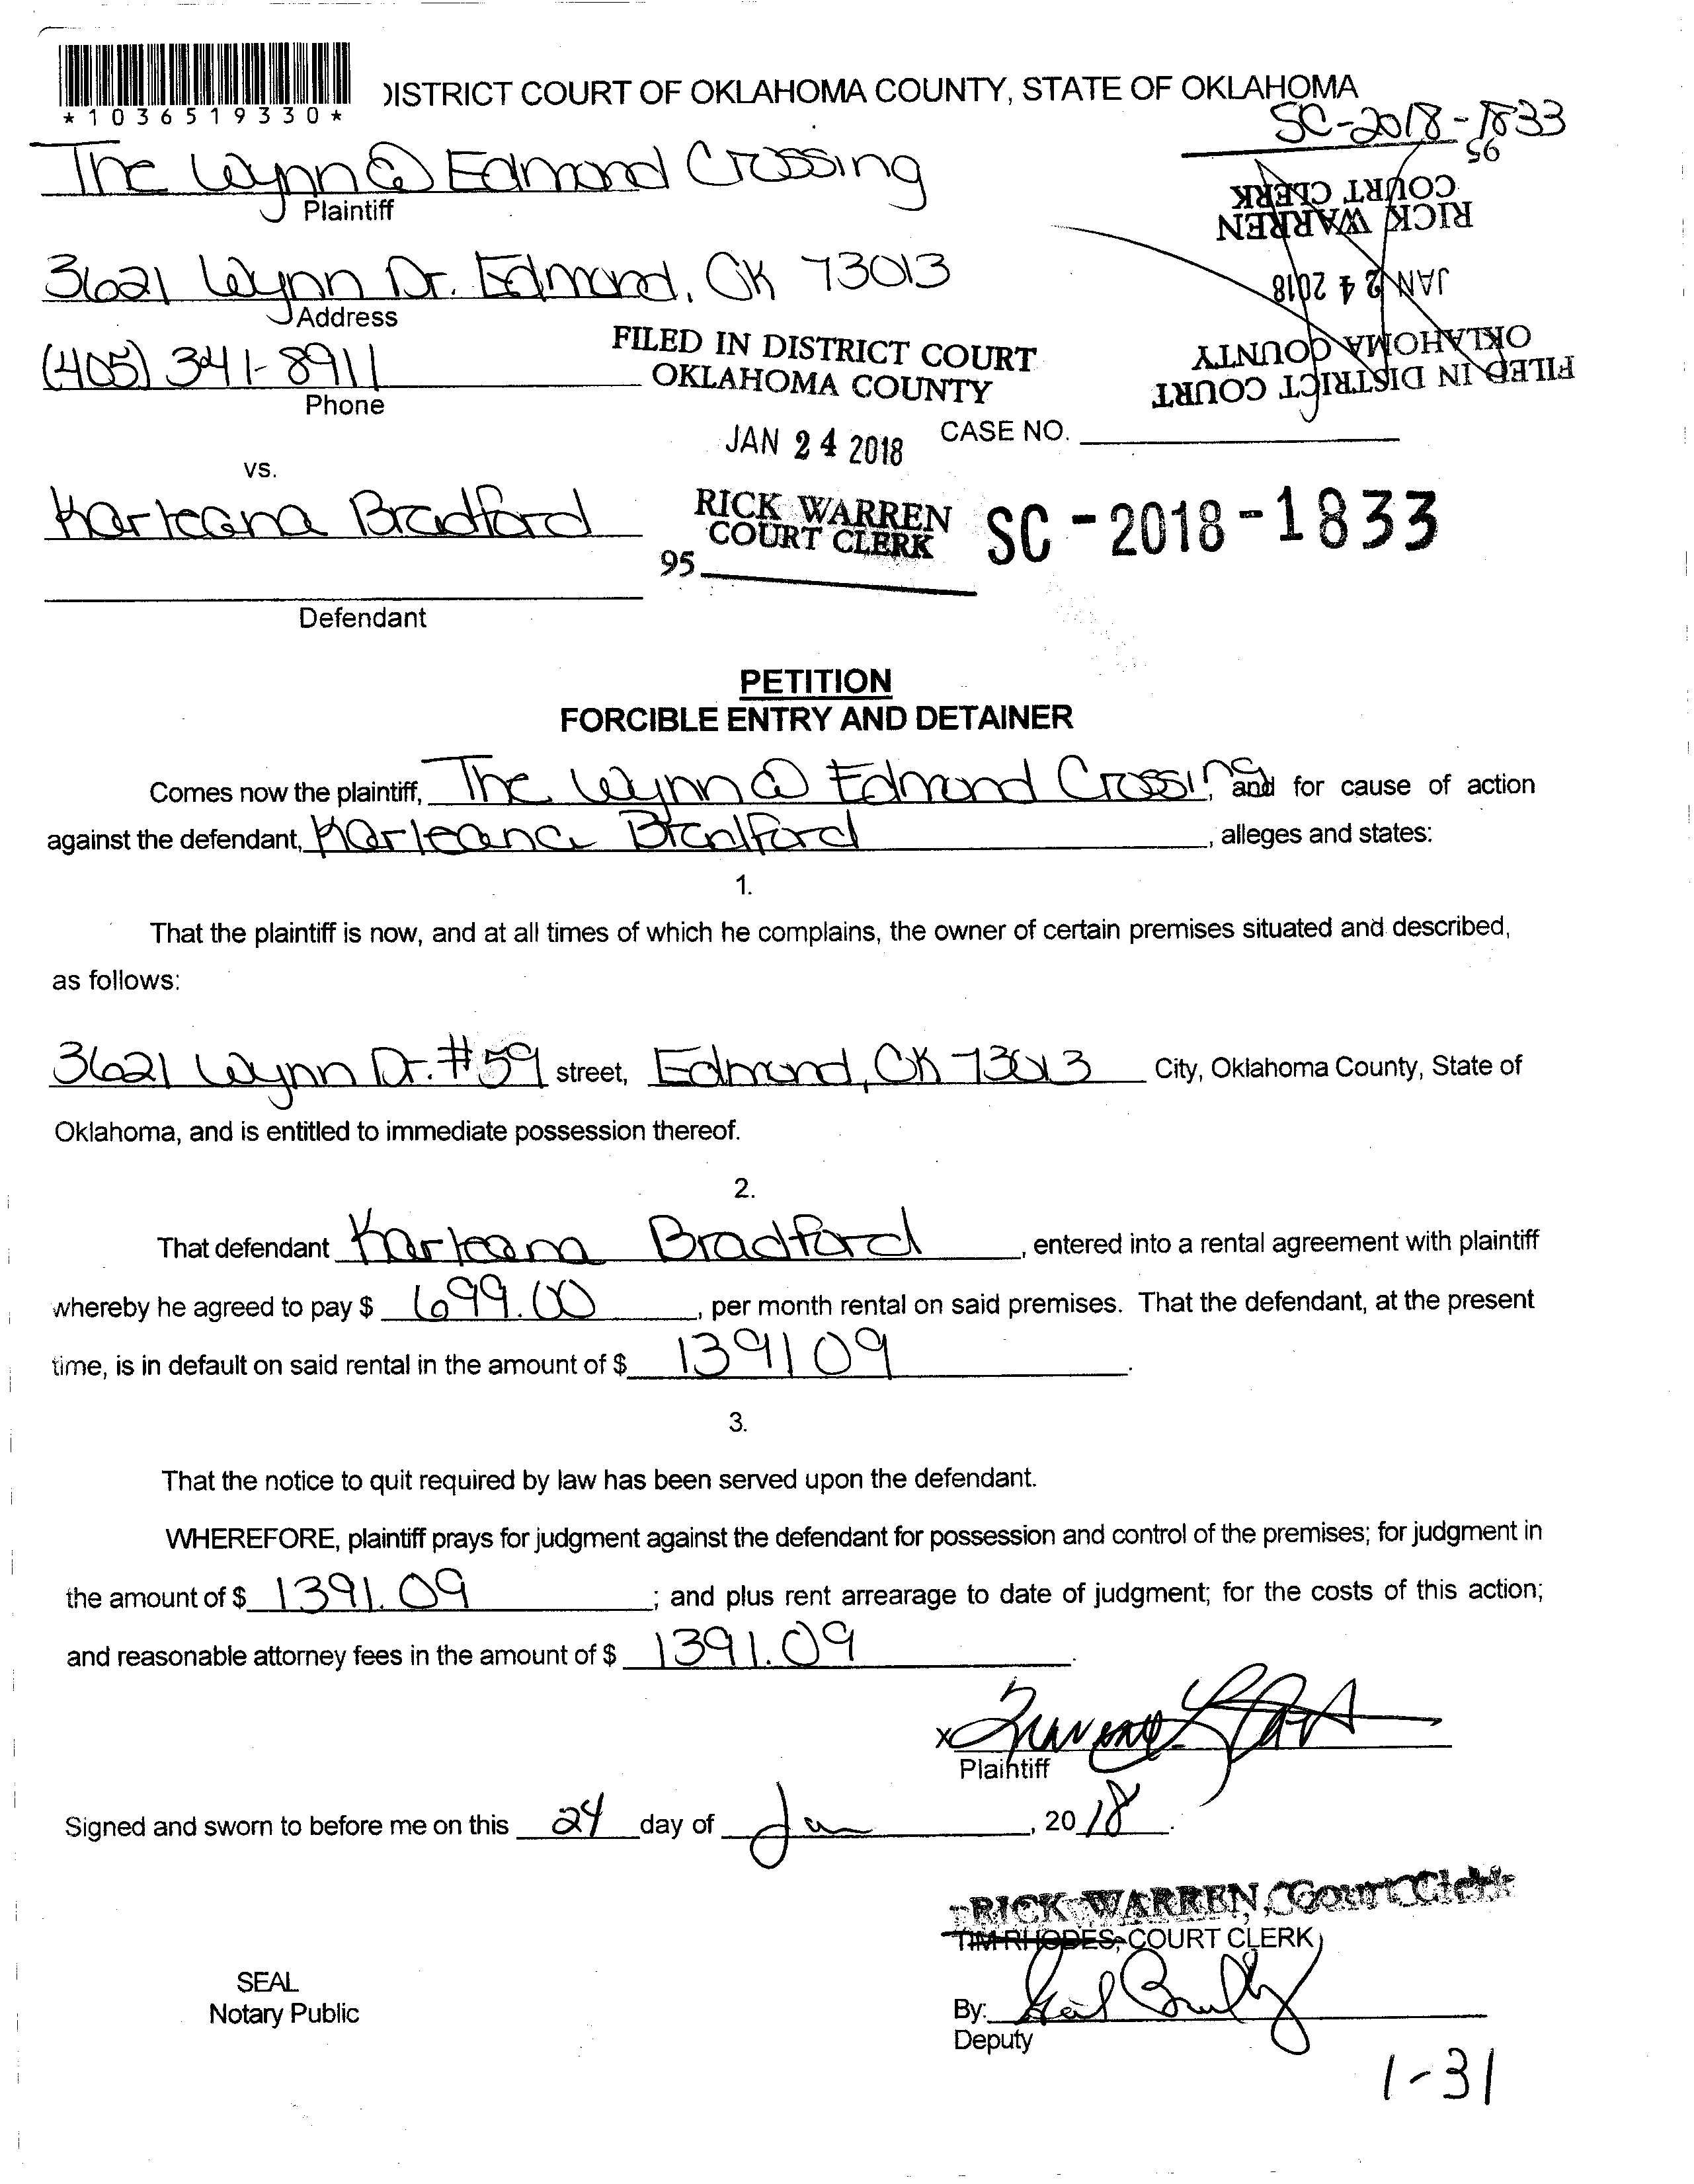 *1036519330*
DISTRICT COURT OF OKLAHOMA COUNTY, STATE OF OKLAHOMA
SC-2018-1833
The Wynn @ Edmond Crossing
Plaintiff
95
RICK WARREN
COURT CLERK
3621 Wynn Dr. Edmond, OK 73013
Address
JAN 24 2018
FILED IN DISTRICT COURT
OKLAHOMA COUNTY
(405) 341-8911
Phone
FILED IN DISTRICT COURT
OKLAHOMA COUNTY
JAN 24 2018
CASE NO.
vs.
Karleana Bradford
RICK WARREN
COURT CLERK
95
SC-2018-1833
Defendant
PETITION
FORCIBLE ENTRY AND DETAINER
Comes now the plaintiff, The Wynn @ Edmond Crossing, and for cause of action
against the defendant, Karleana Bradford, alleges and states:
1.
That the plaintiff is now, and at all times of which he complains, the owner of certain premises situated and described,
as follows:
3621 Wynn Dr. #59 street, Edmond, OK 73013 City, Oklahoma County, State of
Oklahoma, and is entitled to immediate possession thereof.
2.
That defendant Karleana Bradford, entered into a rental agreement with plaintiff
whereby he agreed to pay $ 699.00, per month rental on said premises. That the defendant, at the present
time, is in default on said rental in the amount of $ 139109.
3.
That the notice to quit required by law has been served upon the defendant.
WHEREFORE, plaintiff prays for judgment against the defendant for possession and control of the premises; for judgment in
the amount of $ 1391.09; and plus rent arrearage to date of judgment; for the costs of this action;
and reasonable attorney fees in the amount of $ 1391.09.
x
Plaintiff
Signed and sworn to before me on this 24 day of Jan, 2018.
RICK WARREN, Court Clerk
TIM RHODES, COURT CLERK
SEAL
Notary Public
By:
Deputy
1-31